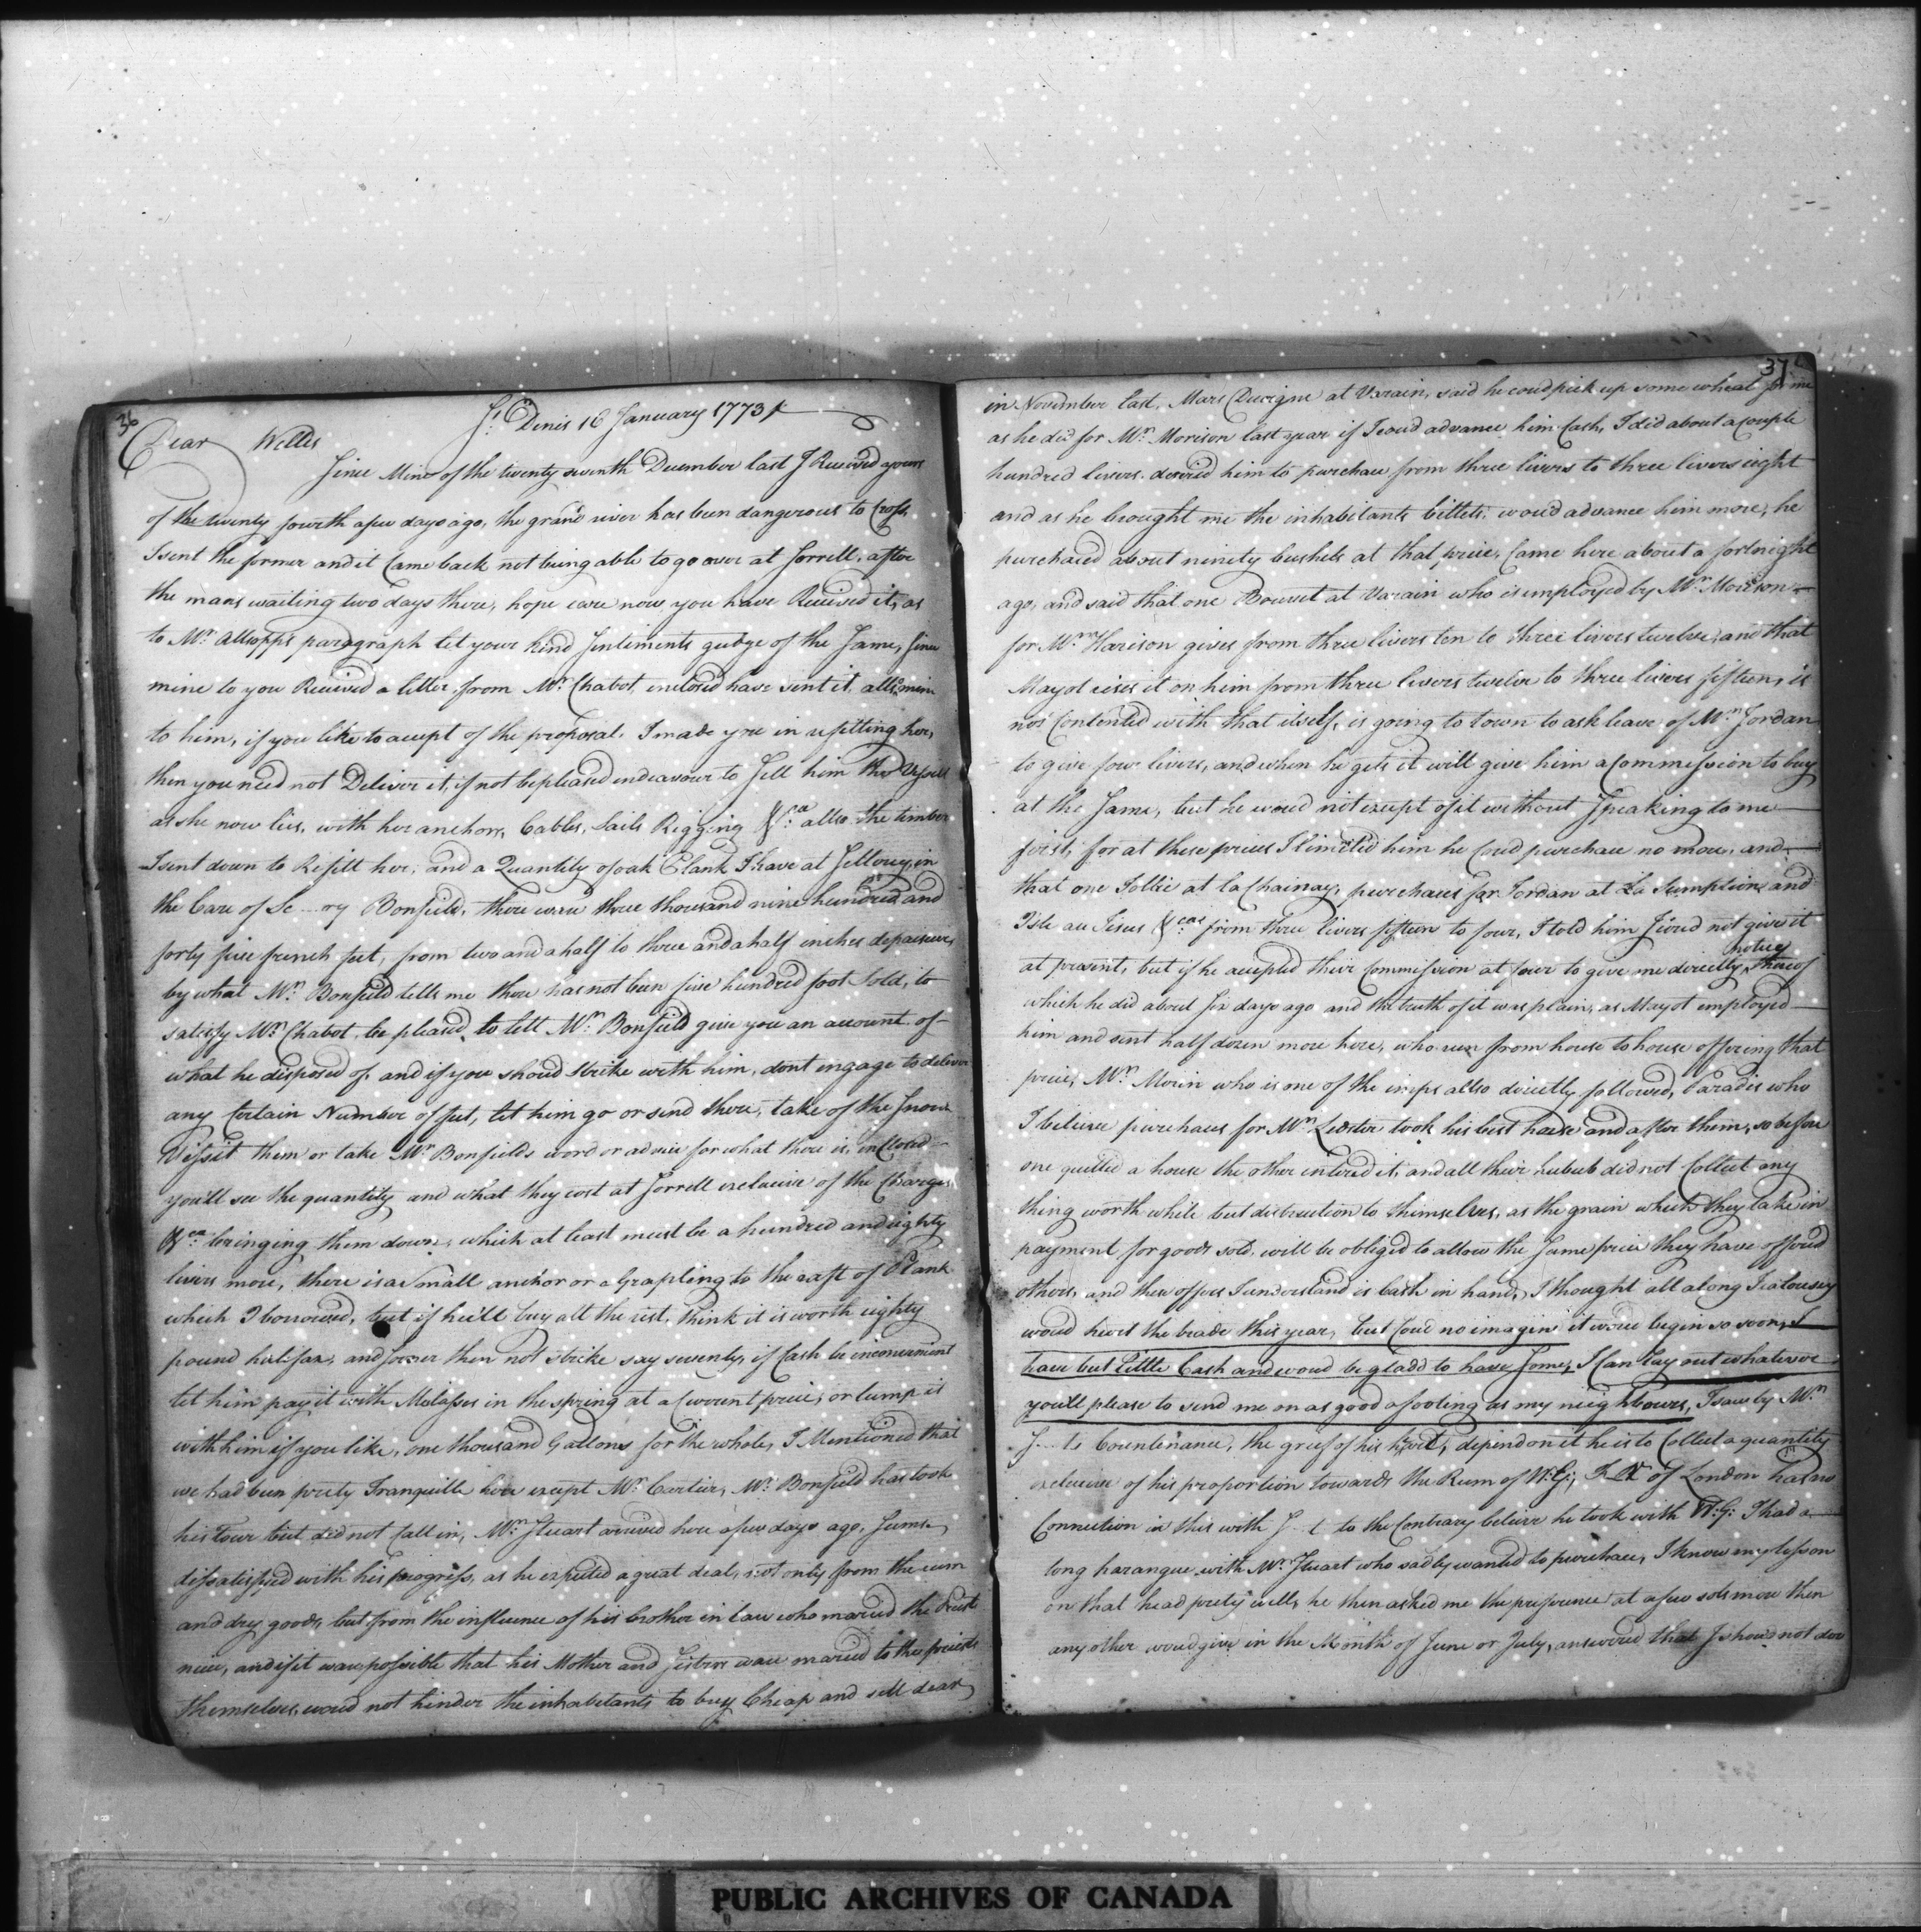 36
St. Denis 16 January 1773
Dear Welles
Since Mine of the twenty seventh December last I Received yours
of the twenty fourth a few days ago, the grand river has been dangerous to Cross,
I sent the former and it Came back not being able to go over at Sorrell, after
the mans waiting two days there, hope eare now you have Received it, as
to Mr. Allsopps paragraph let your kind Sentiments gudge of the Same, Since
mine to you Received a letter from Mr. Chabot, inclosed have sent it, allso mine
to him, if you like to accept of the proposal I made you in refitting her,
then you need not Deliver it, if not be pleased endeavour to Sell him the Vessell
as she now lies, with her anchors, Cables, Sails Rigging &ca. allso the timber
I sent down to Refitt her, and a Quantity of oak Plank I have at Sellery, in
the Care of Se...ry Bonfield, there ware three thousand nine hundred and
forty five french feet, from two and a half to three and a half inches depaiseur,
by what Mr. Bonfield tells me there has not been five hundred foot Sold, to
satisfy Mr. Chabot, be pleased to lett Mr. Bonfield give you an account of
what he disposed of, and if you shoud strike with him, dont engage to deliver
any Certain Number of feet, let him go or send there, take of the Snow
Vissit them or take Mr. Bonfields word or advice for what there is, inclosed
you'll see the quantity and what they cost at Sorrell exclusive of the Charges
&ca. bringing them down, which at least must be a hundred and eighty
livers more, there is a Small anchor or a Grapling to the raft of Plank
which I borrowed, but if he'ill buy all the rest, think it is worth eighty
pound halifax, and sooner then not strike say seventy, if Cash be inconvenient
let him pay it with Molasses in the spring at a Current price, or lump it
with him if you like, one thousand Gallons for the whole, I Mentioned that
we had been prety Tranquille here except Mr. Cartier, Mr. Bonfield has took
his Tour but did not Call in, Mr. Stuart arived here a few days ago, Seems
dissatisfied with his progress, as he expected a great deal, not only from the rum
and dry goods, but from the influence of his brother in law who maried the Priests
niece, and if it ware possible that his Mother and Sisters ware maried to the priests
themselves, woud not hinder the inhabitants to buy Cheap and sell dear,
37
in November last, Marc Ducigne at Varain, said he coud pick up some wheat for me
as he did for Mr. Morison last year if I coud advance him Cash, I did about a Couple
hundred livers, desired him to purchase from three livers to three livers eight
and as he brought me the inhabitants billets, woud advance him more, he
purchased about ninety bushels at that price, Came here about a fortnight
ago, and said that one Bourset at Varain who is employed by Mr. Morison
for Mr. Harison gives from three livers ten to three livers twelve, and that
Mayot rises it on him from three livers twelve to three livers fifteen, is
not Contented with that itself, is going to town to ask leave of Mr. Jordan
to give four livers, and when he gets it will give him a Commission to buy
at the Same, but he woud not except of it without Speaking to me
first, for at these prices I limitted him he Coud purchase no more, and
that one Tollie at la Chainay, purchases for Jordan at La Sumption and
Isle au Jesus &cas. from three livers fifteen to four, I told him I coud not give it
at present, but if he accepted their Commission at four to give me directly notice thereof
which he did about Six days ago and the truth of it was plain, as Mayot employed
him and sent half dozen more here, who run from house to house offering that
price, Mr. Morin who is one of the imps allso directly followed, Paradis who
I believe purchases for Mr. Lester took his best horse and after them, so before
one quitted a house the other entered it, and all their hubub did not Collect any
thing worth while but distruction to themselves, as the grain which they take in
payment for goods sold, will be obliged to allow the Same price they have offered
others, and these offers I understand is Cash in hand, I thought all along Jealousy
woud heurt the trade this year, but Coud no imagin it woud begin so soon, I
have but Little Cash and woud be gladd to have Some, I Can Lay out whatever
you'll please to send me on as good a footing as my neighbours, I saw by Mr.
J...ts Countenance, the greef of his heart, depend on it he is to Collect a quantity
exclusive of his proportion towards the Rum of W:G; of London has no
Connection in this with J...t to the Contrary believe he took with W:G: I had a
long harangue with Mr. Stuart who sadly wanted to purchase, I know my lesson
on that head prety well, he then asked me the preference at a few sols more then
any other woud give in the Month of June or July, answered that I shoud not doe
PUBLIC ARCHIVES OF CANADA